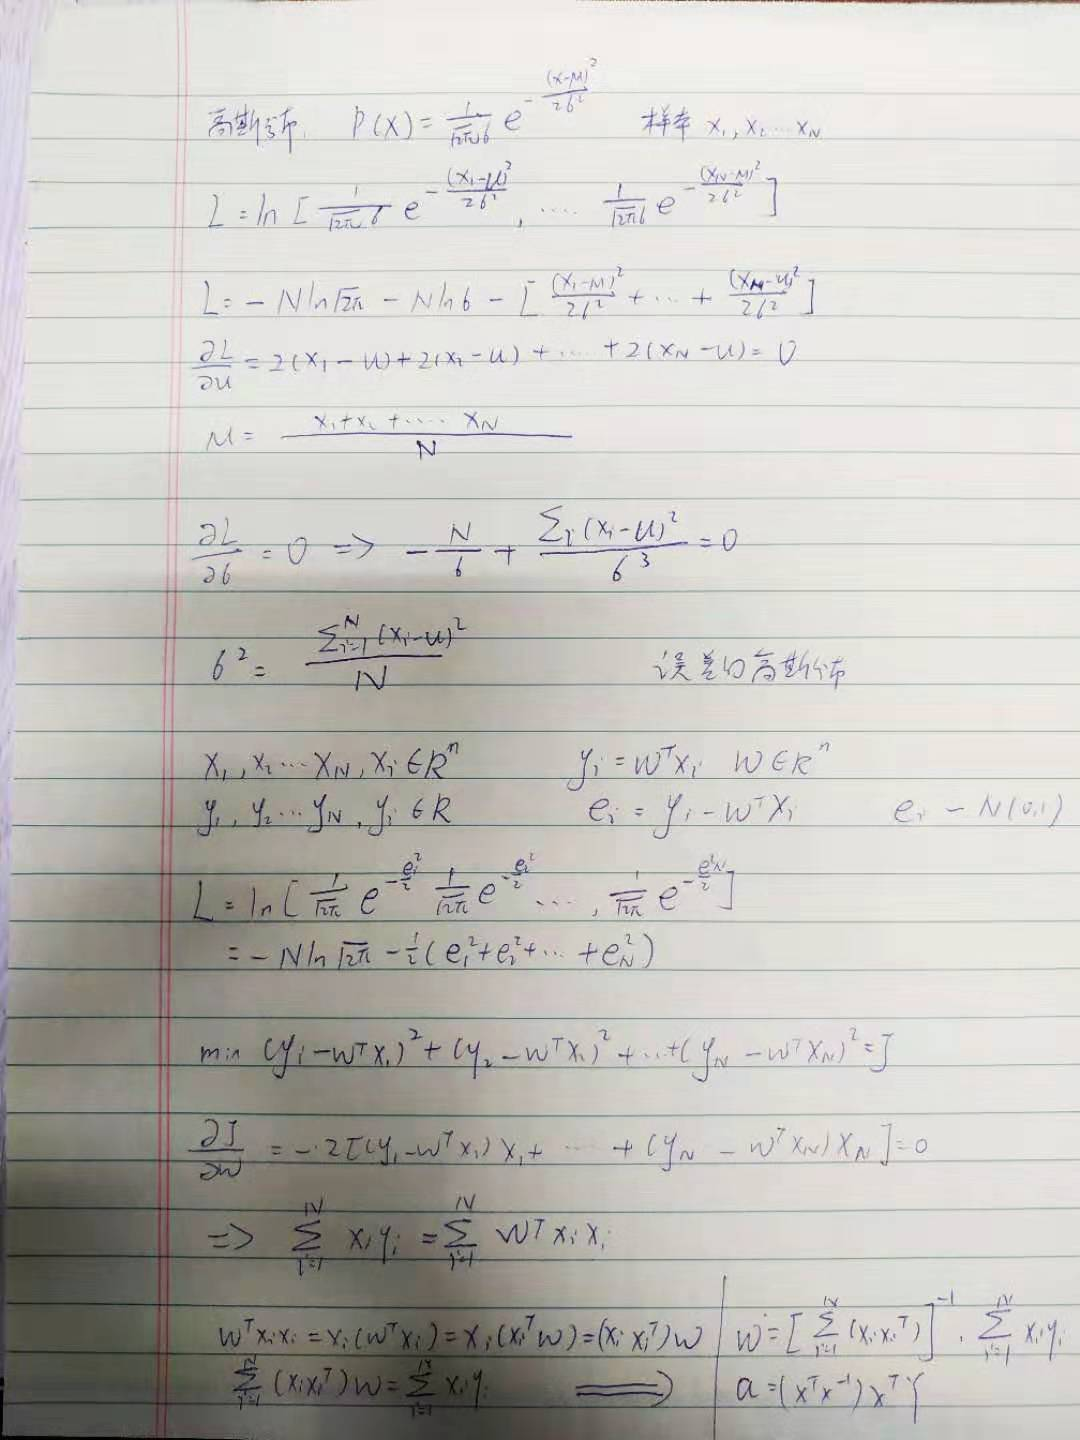 高斯分布. P(X) = 1/(√2π 6) e^{-(x-μ)²/(26²)} 样本 x₁, x₂ ... x_N
L = ln [ 1/(√2π 6) e^{-(x₁-μ)²/(26²)}, .... 1/(√2π 6) e^{-(x_N-μ)²/(26²)} ]
L = - N ln√2π - N ln6 - [ (x₁-μ)²/(26²) + ... + (x_N-u)²/(26²) ]
∂L/∂u = 2(x₁-u) + 2(x₂-u) + ..... + 2(x_N-u) = 0
μ = (x₁+x₂+..... x_N)/N
∂L/∂6 = 0 => - N/6 + Σᵢ(xᵢ-u)²/6³ = 0
6² = Σ_{i=1}^{N}(xᵢ-u)²/N 误差的高斯分布
x₁, x₂ ... x_N, xᵢ ∈ Rⁿ yᵢ = wᵀxᵢ w ∈ Rⁿ
y₁, y₂ ... y_N, yᵢ ∈ R eᵢ = yᵢ - wᵀxᵢ eᵢ - N(0,1)
L = ln [ 1/√2π e^{-e₁²/2} 1/√2π e^{-e₂²/2} ..., 1/√2π e^{-e_N²/2} ]
= - N ln√2π - ½(e₁²+e₂²+...+e_N²)
min (y₁-wᵀx₁)² + (y₂-wᵀx₂)² + ... + (y_N-wᵀx_N)² = J
∂J/∂w = -2[(y₁-wᵀx₁)x₁ + ... + (y_N-wᵀx_N)x_N] = 0
=> Σ_{i=1}^{N} xᵢyᵢ = Σ_{i=1}^{N} wᵀxᵢxᵢ
wᵀxᵢxᵢ = xᵢ(wᵀxᵢ) = xᵢ(xᵢᵀw) = (xᵢxᵢᵀ)w
Σ_{i=1}^{N}(xᵢxᵢᵀ)w = Σ_{i=1}^{N} xᵢyᵢ ⟹
w = [Σ_{i=1}^{N}(xᵢxᵢᵀ)]⁻¹ . Σ_{i=1}^{N} xᵢyᵢ
a = (xᵀx⁻¹)xᵀY